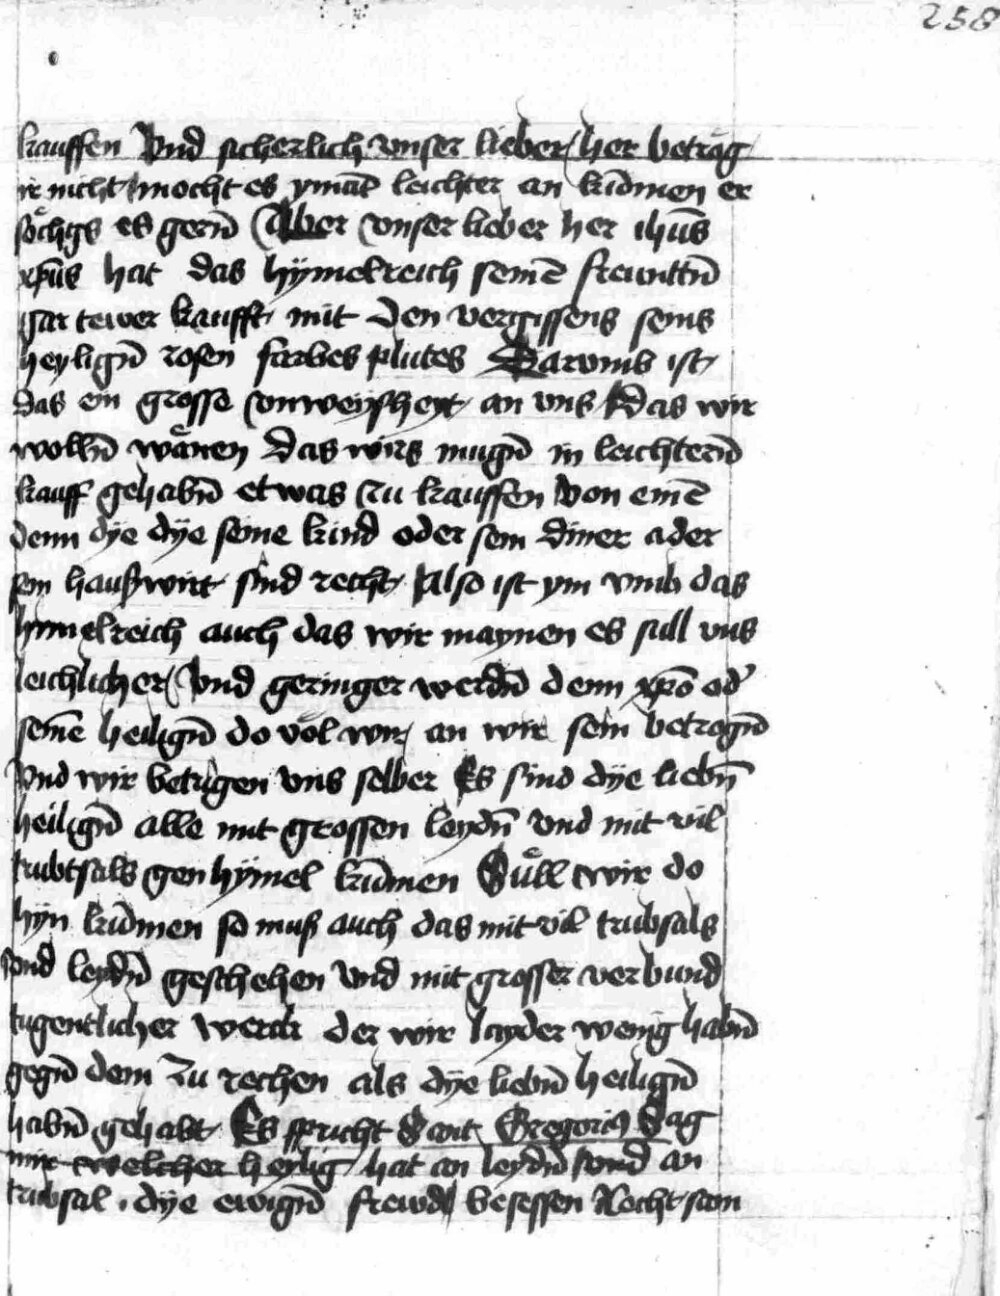 258
kauffen Vnd sicherlich vnser lieber her betrag
ir nicht mocht es ymãt leichter an kũmen er
söchgs es gerñ Aber vnser lieber her ihũs
xpũs hat das hÿmelreich seinẽ freuntñ
gar tewer kaufft mit den vergissens seins
heyligñ rosen farbes plutes Darvmb ist
das ein grosse vnweysheyt an vns Das wir
wollñ wänen Das wirs mugñ in leichterñ
kauff gehabñ etwas zu kauffen von einẽ
denn dÿe dÿe seine kind oder sein diner ader
sein haußwirt sind recht Also ist ym vmb das
himelreich auch das wir maynen es sull vns
leichlicher Vnd geringer werdñ denn xpõ od'
seinẽ heiligñ do völ wir an wir sein betrogñ
Vnd wir betrugen vns selber Es sind dÿe liebñ
heiligñ alle mit grossen leydñ vnd mit vil
trubtsals gen hÿmel kũmen Süll wir do
hÿn kũmen so muß auch das mit vil trubsals
vnd leydñ geschehen Vnd mit grosser verbund
tugentlicher werck der wir layder wenig habñ
gegñ dem zu rechen als dÿe liebñ heiligñ
habñ gehabt Es spricht Sant Gregorius Sag
mir welcher heylig hat an leydñ vnd an
trubsal . dÿe ewigñ frewd besessen Recht sam